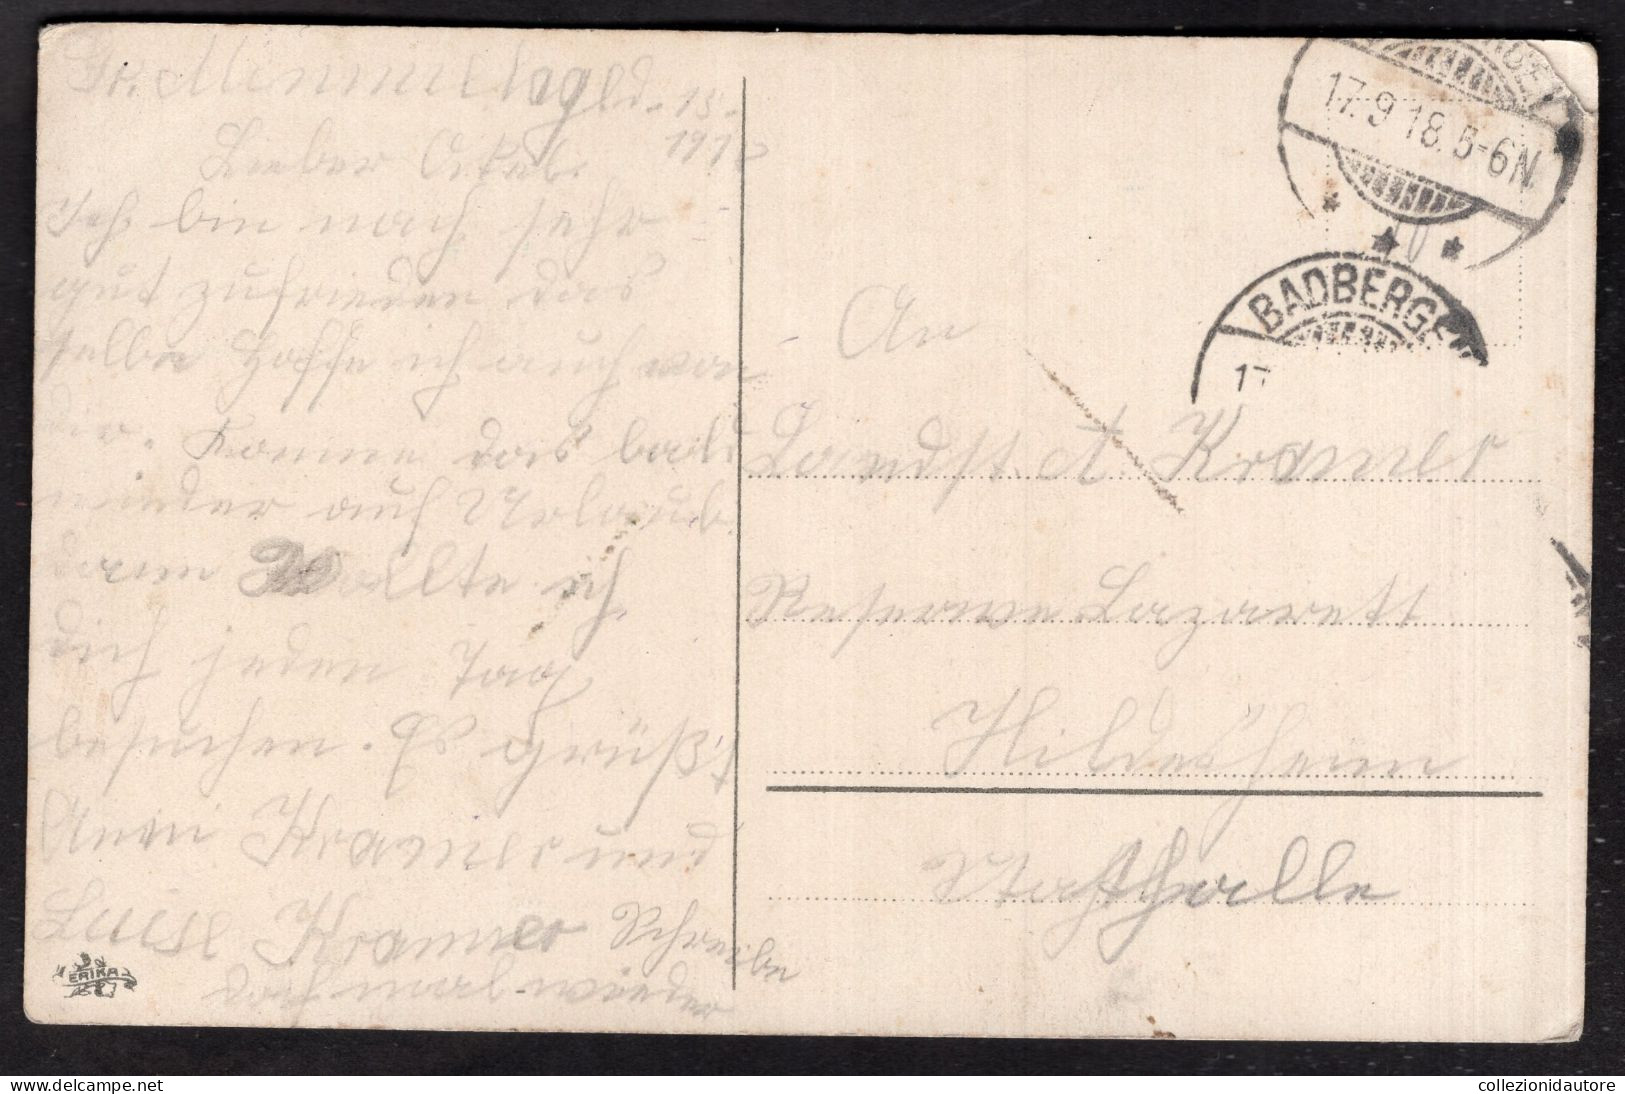 Gr. Mimmelage d. 15.
1918
Lieber Onkel.
Ich bin noch sehr
gut zufrieden das
selbe Hoffe ich auch von
dir. Komme das bald
wieder auf Urlaub
dann wollte ich
dich jeden Tag
besuchen. Es grüßt
Anni Kramer und
Luise Kramer Schreibe
doch mal wieder
ERIKA
17.9.18.5-6N.
BADBERGEN
17
An
Landst. A. Kramer
Reserve Lazarett
Hildesheim
Stadthalle
collezionidautore